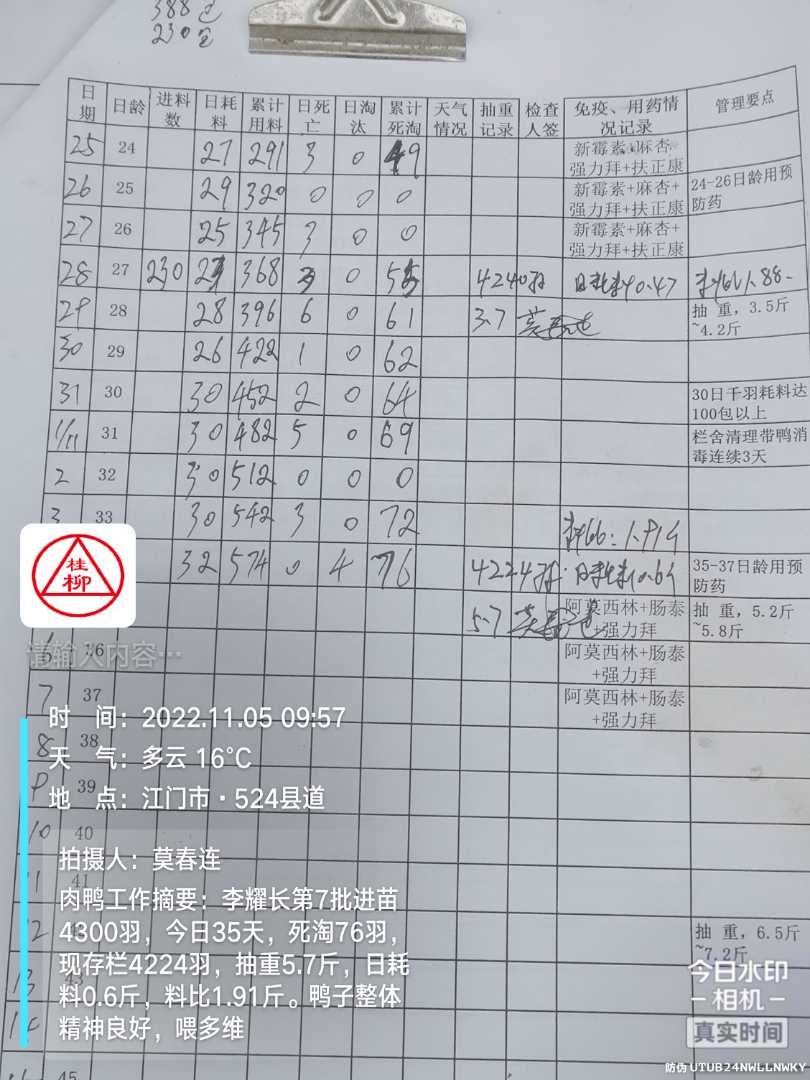 388包
230包
日期 日龄 进料数 日耗料 累计用料 日死亡 日淘汰 累计死淘 天气情况 抽重记录 检查人签 免疫、用药情况记录 管理要点
25 24 27 291 3 0 49 新霉素+麻杏+强力拜+扶正康
26 25 29 320 0 0 0 新霉素+麻杏+强力拜+扶正康 24-26日龄用预防药
27 26 25 345 3 0 0 新霉素+麻杏+强力拜+扶正康
28 27 230 23 368 3 0 55 4240羽 日耗料0.47 料比1.88
29 28 28 396 6 0 61 3.7 莫春连 抽重，3.5斤~4.2斤
30 29 26 422 1 0 62
31 30 30 452 2 0 64 30日千羽耗料达100包以上
1/11 31 30 482 5 0 69 栏舍清理带鸭消毒连续3天
2 32 30 512 0 0 0
3 33 30 542 3 0 72 料比: 1.91斤
32 574 0 4 76 4224羽 日耗料0.6斤 35-37日龄用预防药
5.7 莫春连 阿莫西林+肠泰+强力拜 抽重，5.2斤~5.8斤
6 36 阿莫西林+肠泰+强力拜
7 37 阿莫西林+肠泰+强力拜
8 38
9 39
10 40
11 41
12 抽重，6.5斤~7.2斤
13 43
14
45
桂柳
请输入内容…
时 间：2022.11.05 09:57
天 气：多云 16℃
地 点：江门市·524县道
拍摄人：莫春连
肉鸭工作摘要：李耀长第7批进苗
4300羽，今日35天，死淘76羽，
现存栏4224羽，抽重5.7斤，日耗
料0.6斤，料比1.91斤。鸭子整体
精神良好，喂多维
今日水印
相机
真实时间
防伪 UTUB24NWLLNWKY